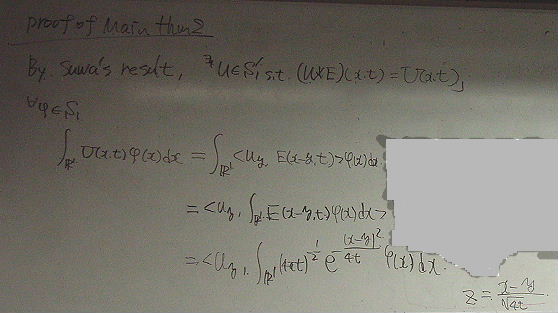 proof of Main thm2
By. Suwa's result, ∃u∈S₁' s.t. (u*E)(x.t) = U(x.t),
∀φ∈S₁
∫_ℝ¹ U(x.t) φ(x)dx = ∫_ℝ¹ <u_y, E(x-y,t)>φ(x)dx.
= <u_y, ∫_ℝ¹ E(x-y,t)φ(x)dx>
= <u_y, ∫_ℝ¹ (4πt)^{-1/2} e^{-(x-y)²/4t} φ(x)dx.
z = x-y/√4t